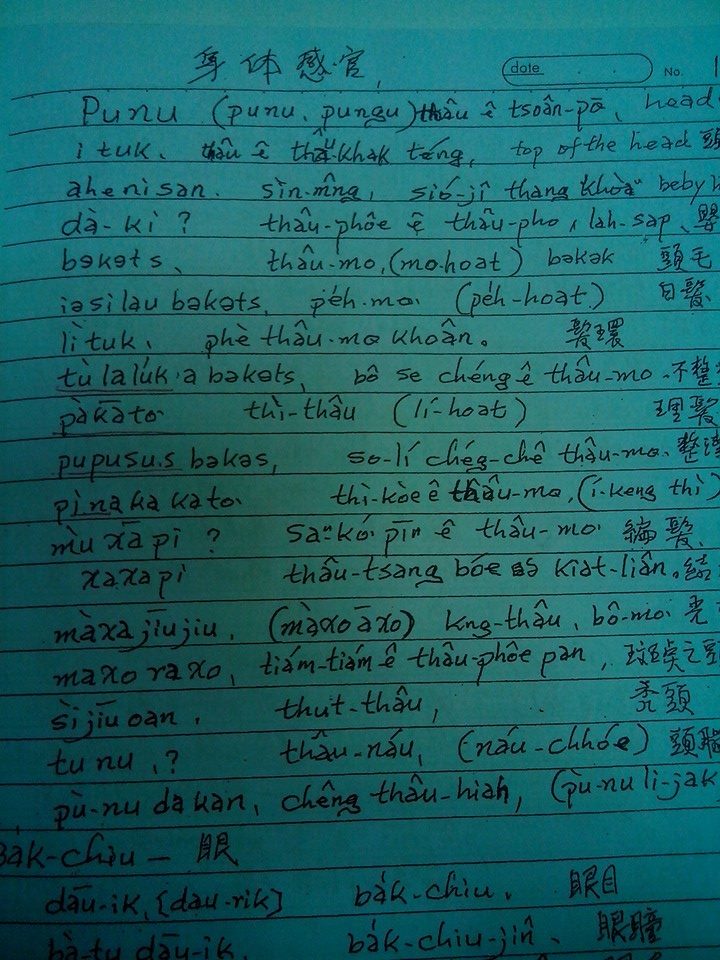 身体感官,
date . . No. 1
Punu (punu, pungu) thâu ê tsoân-pō, head
i tuk. thâu ê thâu-khak téng, top of the head 頭
ahenisan. sìn-mn̂g, sió-jî thang khòaⁿ beby
dà-ki ? thâu-phôe ê thâu-pho, lah-sap、嬰
bəkəts、 thâu-mo, (mo-hoat) bəkək 頭毛
iəsilau bəkəts, péh-mo. (péh-hoat) 白髮
lìtuk. phè thâu-mo khoân。 髮環
tùlalúk'a bəkəts, bô se chéng ê thâu-mo.不整
pàkāto. thì-thâu (lí-hoat) 理髮
pupusus bəkəs, so-lí chég-chê thâu-mo. 整理
pìnəkakato. thì-kòe ê thâu-mo, (í-keng thì)
mùxāpì ? saⁿ-kó. pīn ê thâu-mo. 編髮.
xəxapi thâu-tsang bóe kiat-liân.結
màxajīujiu. (màxoāxo) kng-thâu, bô-mo. 光
maxoraxo, tiám-tiám ê thâu-phôe pan, 斑点之頭
sìjīuoan. thut-thâu, 禿頭
tunu .? thâu-náu, (náu-chhóe) 頭腦
pù-nu dakan, chêng thâu-hiah, (pù-nu li-jak
Bák-chiu — 眼
dāu-ik, [dau-rik] bák-chiu. 眼目
bà-tu dāu-ik. bák-chiu-jîn、 眼瞳